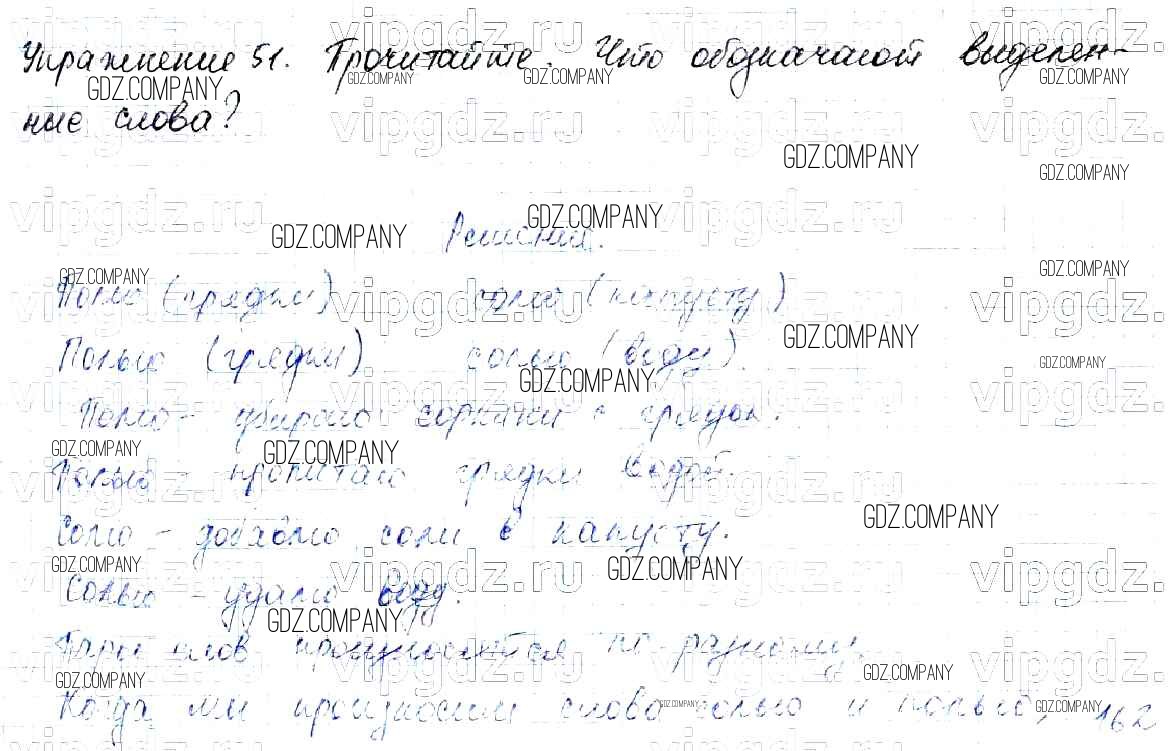 Упражнение 51. Прочитайте. Что обозначают выделен-
ные слова?
Решение.
Полю (грядки) солю (капусту)
Полью (грядки) солью (воду).
Полю - убираю сорняки с грядок.
Полью - пропитаю грядки водой.
Солю - добавлю соли в капусту.
Солью - удалю воду.
Пары слов произносятся по-разному.
Когда мы произносим слова солью и полью, 162